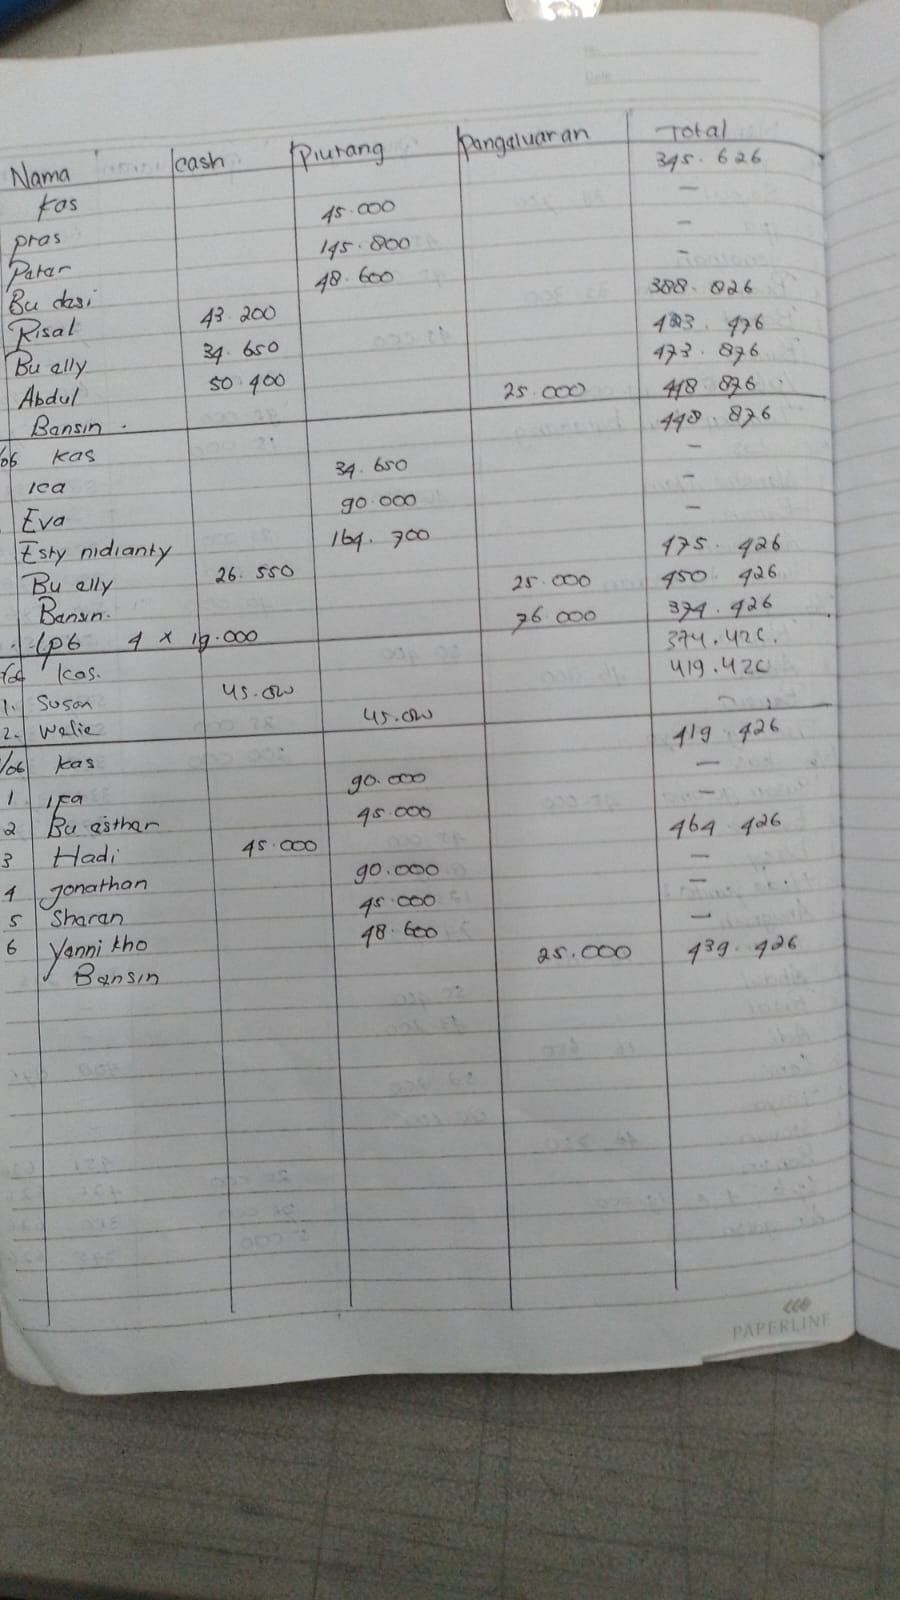 No.
Date
Nama cash Piutang Pangaluaran Total
Kas 345.626
pras 45.000 —
Patar 145.800 —
Bu dasi 48.600 —
Risal 43.200 388.826
Bu ally 34.650 423.476
Abdul 50.400 473.876
Bansin. 25.000 448.876
/06 Kas 448.876
Ica 34.650 —
Eva 90.000 —
Esty nidianty 164.700 —
Bu ally 26.550 475.426
Bansin. 25.000 450.426
Lp6 4 x 19.000 76.000 374.426
/06 Kas. 374.426.
1. Susan 45.000 419.426
2. Welie 45.000 —
/06 Kas 419.426
1 Ifa 90.000 —
2 Bu asthar 45.000 —
3 Hadi 45.000 464.426
4 Jonathan 90.000 —
5 Sharan 45.000 —
6 Yanni tho 48.600 —
Bansin 25.000 439.426
PAPERLINE